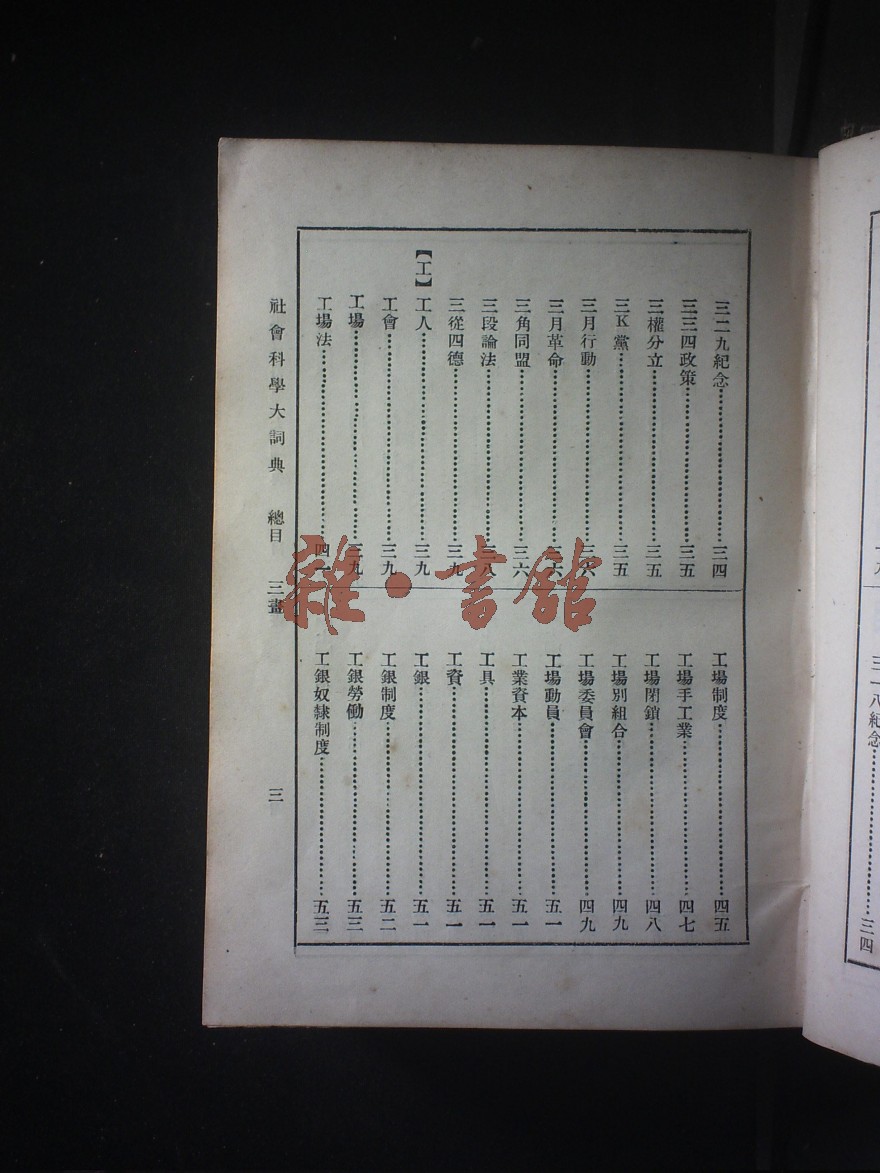 三二九紀念……三四
三三四政策……三五
三權分立……三五
三K黨……三五
三月行動……三六
三月革命……三六
三角同盟……三六
三段論法……三八
三從四德……三九
【工】工人……三九
工會……三九
工場……三九
工場法……四一
工場制度……四五
工場手工業……四七
工場閉鎖……四八
工場別組合……四九
工場委員會……四九
工場動員……五一
工業資本……五一
工具……五一
工資……五一
工銀……五一
工銀制度……五二
工銀勞働……五三
工銀奴隸制度……五三
社會科學大詞典 總目 三畫 三
三一八紀念……三四
雜·書館